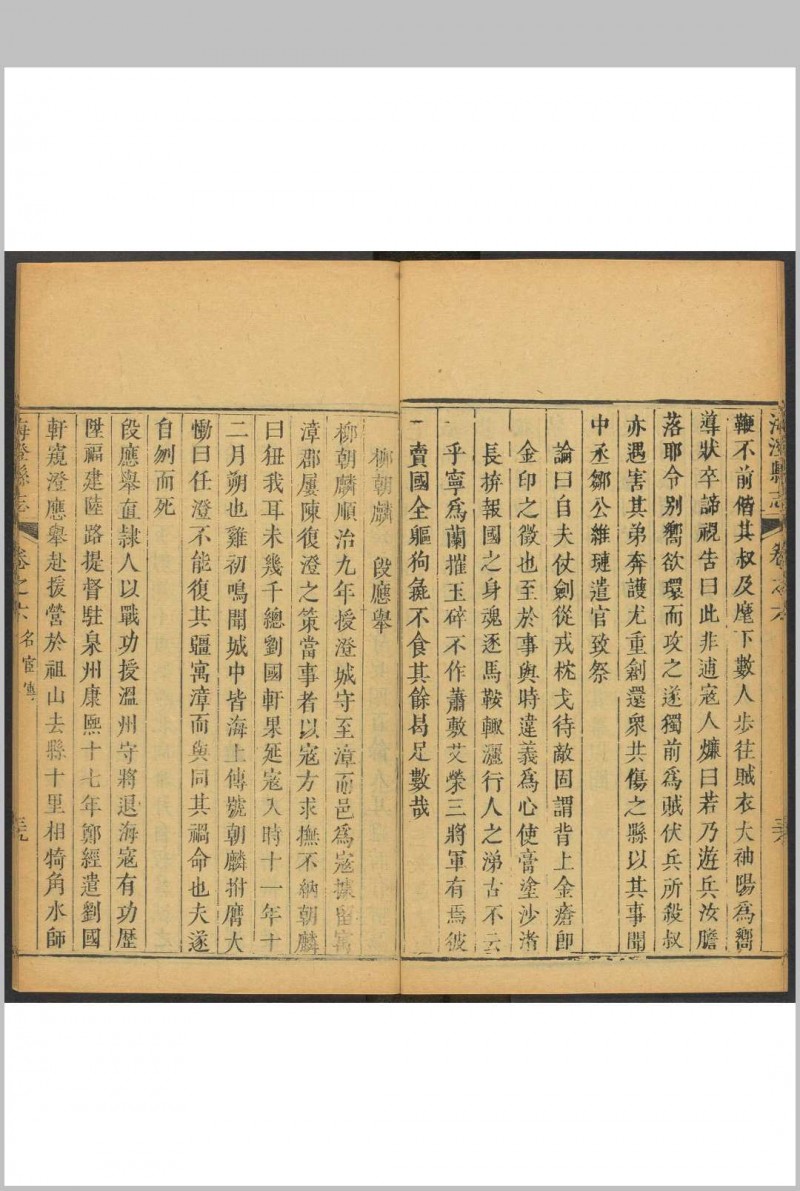 海澄縣志 卷之六 三六
鞭不前偕其叔及麾下數人步往賊衣大袖陽為嚮
導狀卒諦視告曰此非逋寇人嫌曰若乃遊兵汝膽
落耶令別嚮欲環而攻之遂獨前為賊伏兵所殺叔
亦遇害其弟奔護尤重創還眾共傷之縣以其事聞
中丞鄒公維璉遣官致祭
論曰自夫仗劍從戎枕戈待敵固謂背上金瘡即
金印之徵也至於事與時違義為心使膏塗沙渚
長捹報國之身魂逐馬鞍輙灑行人之涕古不云
乎寧為蘭摧玉碎不作蕭敷艾榮三將軍有焉彼
一賣國全軀狗彘不食其餘曷足數哉
柳朝麟 段應舉
柳朝麟順治九年授澄城守至漳而邑為寇據留寓
漳郡屢陳復澄之策當事者以寇方求撫不納朝麟
曰狃我耳未幾千總劉國軒果延寇入時十一年十
二月朔也雞初鳴聞城中皆海上傳號朝麟拊膺大
慟曰任澄不能復其疆寓漳而與同其禍命也夫遂
自刎而死
段應舉直隸人以戰功授溫州守將退海寇有功歷
陞福建陸路提督駐泉州康熙十七年鄭經遣劉國
軒窺澄應舉赴援營於祖山去縣十里相犄角水師
海澄縣志 卷之六 名宦傳 三九